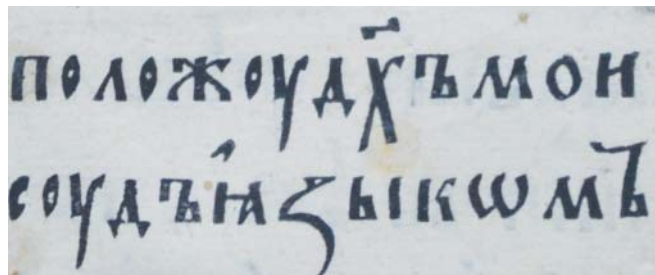 положоу дх҃ъ мои
соудъ ꙗзыкѡмъ